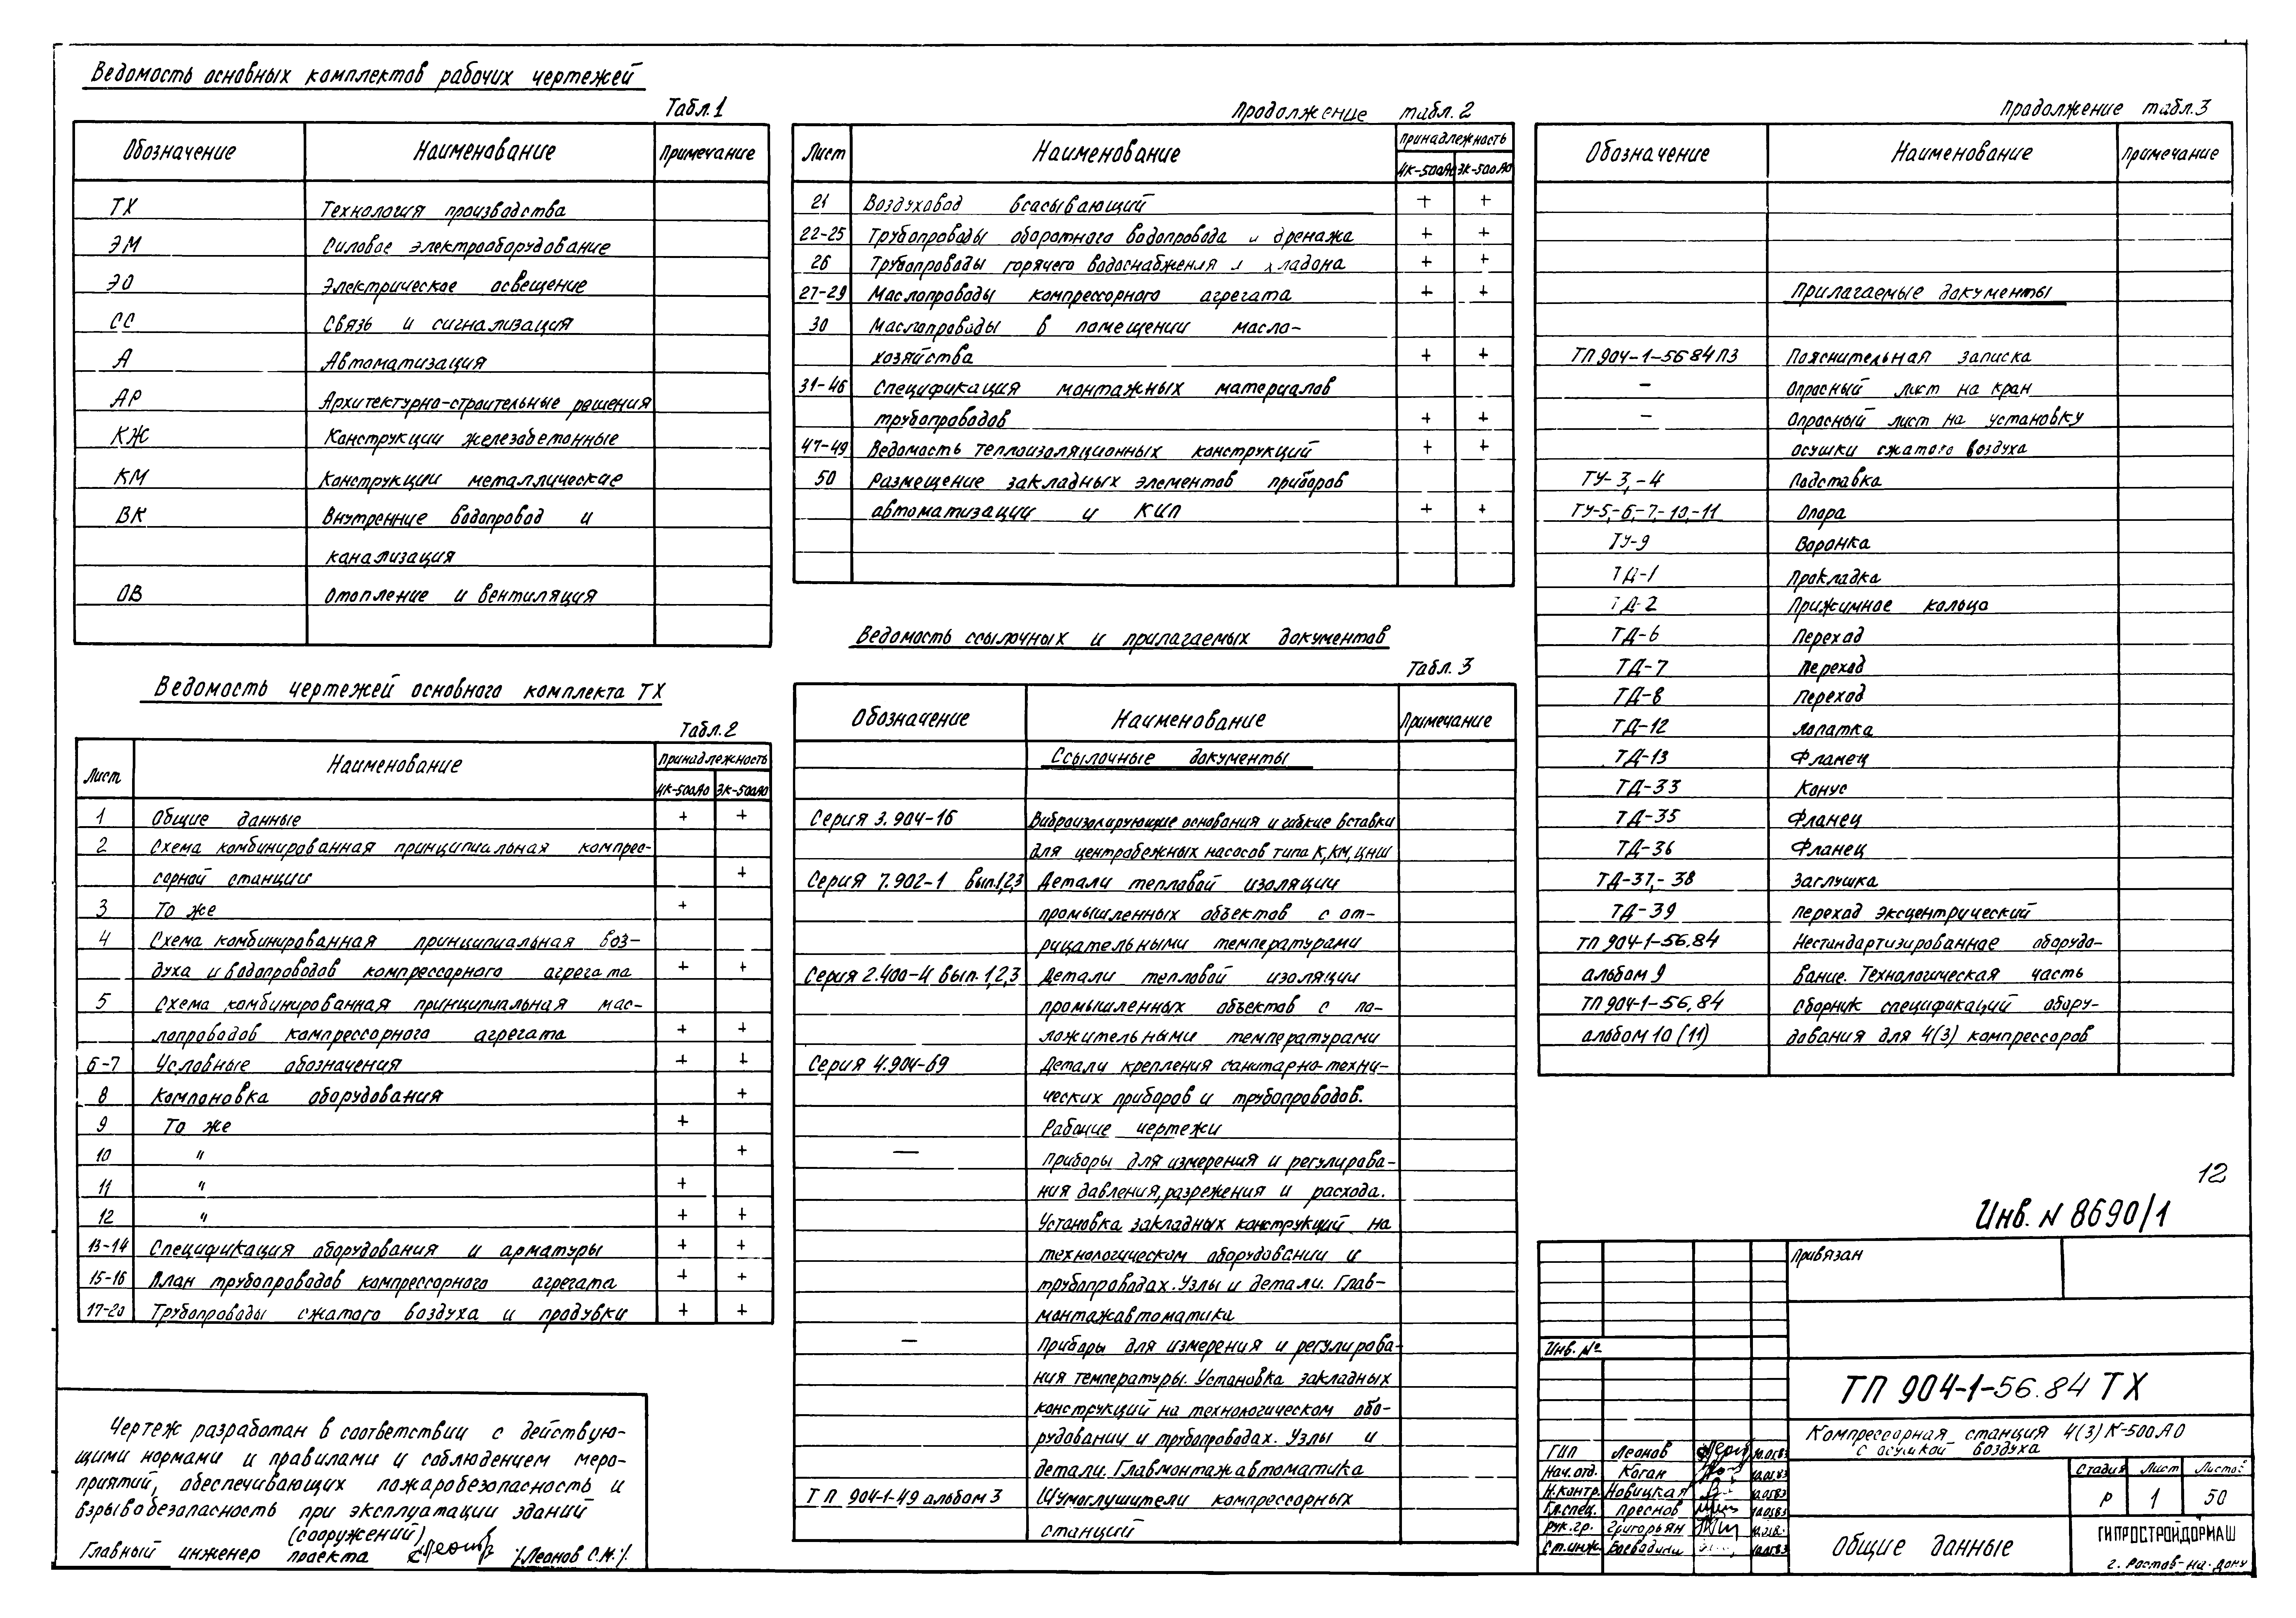 Ведомость основных комплектов рабочих чертежей
Табл.1
Обозначение Наименование Примечание
ТХ Технология производства
ЭМ Силовое электрооборудование
ЭО Электрическое освещение
СС Связь и сигнализация
А Автоматизация
АР Архитектурно-строительные решения
КЖ Конструкции железобетонные
КМ Конструкции металлические
ВК Внутренние водопровод и
канализация
ОВ Отопление и вентиляция
Ведомость чертежей основного комплекта ТХ
Табл.2
Лист Наименование Принадлежность
4К-500АО 3К-500АО
1 Общие данные + +
2 Схема комбинированная принципиальная компрес-
сорной станции +
3 То же +
4 Схема комбинированная принципиальная воз-
духа и водопроводов компрессорного агрегата + +
5 Схема комбинированная принципиальная мас-
лопроводов компрессорного агрегата + +
6-7 Условные обозначения + +
8 Компоновка оборудования +
9 То же +
10 " +
11 " +
12 " + +
13-14 Спецификация оборудования и арматуры + +
15-16 План трубопроводов компрессорного агрегата + +
17-20 Трубопроводы сжатого воздуха и продувки + +
Чертеж разработан в соответствии с действую-
щими нормами и правилами и соблюдением меро-
приятий, обеспечивающих пожаробезопасность и
взрывобезопасность при эксплуатации зданий
(сооружений)
Главный инженер проекта /Леонов С.М./
Продолжение табл. 2
Лист Наименование Принадлежность
4К-500АО 3К-500АО
21 Воздуховод всасывающий + +
22-25 Трубопроводы оборотного водопровода и дренажа + +
26 Трубопроводы горячего водоснабжения и хладона + +
27-29 Маслопроводы компрессорного агрегата + +
30 Маслопроводы в помещении масло-
хозяйства + +
31-46 Спецификация монтажных материалов
трубопроводов + +
47-49 Ведомость теплоизоляционных конструкций + +
50 Размещение закладных элементов приборов
автоматизации и КИП + +
Ведомость ссылочных и прилагаемых документов
Табл. 3
Обозначение Наименование Примечание
Ссылочные документы
Серия 3.904-16 Виброизолирующие основания и гибкие вставки
для центробежных насосов типа К, КМ, ЦНШ
Серия 7.902-1 вып.1,2,3 Детали тепловой изоляции
промышленных объектов с от-
рицательными температурами
Серия 2.400-4 вып. 1,2,3 Детали тепловой изоляции
промышленных объектов с по-
ложительными температурами
Серия 4.904-69 Детали крепления санитарно-техни-
ческих приборов и трубопроводов.
Рабочие чертежи
— Приборы для измерения и регулирова-
ния давления, разрежения и расхода.
Установка закладных конструкций на
технологическом оборудовании и
трубопроводах. Узлы и детали. Глав-
монтажавтоматика
— Приборы для измерения и регулирова-
ния температуры. Установка закладных
конструкций на технологическом обо-
рудовании и трубопроводах. Узлы и
детали. Главмонтажавтоматика
ТП 904-1-49 альбом 3 Шумоглушители компрессорных
станций
Продолжение табл.3
Обозначение Наименование Примечание
Прилагаемые документы
ТП 904-1-56 84 ПЗ Пояснительная записка
— Опросный лист на кран
— Опросный лист на установку
осушки сжатого воздуха
ТУ-3,-4 Подставка
ТУ-5,-6,-7,-10,-11 Опора
ТУ-9 Воронка
ТД-1 Прокладка
ТД-2 Прижимное кольцо
ТД-6 Переход
ТД-7 Переход
ТД-8 Переход
ТД-12 Лопатка
ТД-13 Фланец
ТД-33 Конус
ТД-35 Фланец
ТД-36 Фланец
ТД-37,-38 Заглушка
ТД-39 Переход эксцентрический
ТП 904-1-56.84 Нестандартизированное оборудо-
альбом 9 вание. Технологическая часть
ТП 904-1-56.84 Сборник спецификаций обору-
альбом 10 (11) дования для 4(3) компрессоров
12
Инв. N 8690/1
Привязан
Инв. №
ТП 904-1-56.84 ТХ
Компрессорная станция 4(3)К-500АО
с осушкой воздуха
ГИП Леонов 10.05.83
Нач.отд. Коган 10.05.83
Н.контр. Новицкая 10.05.83
Гл.спец. Преснов 10.05.83
рук.гр. Григорьян
Ст.инж. 10.05.83
Стадия Лист Листов
Р 1 50
Общие данные
ГИПРОСТРОЙДОРМАШ
г. Ростов-на-Дону